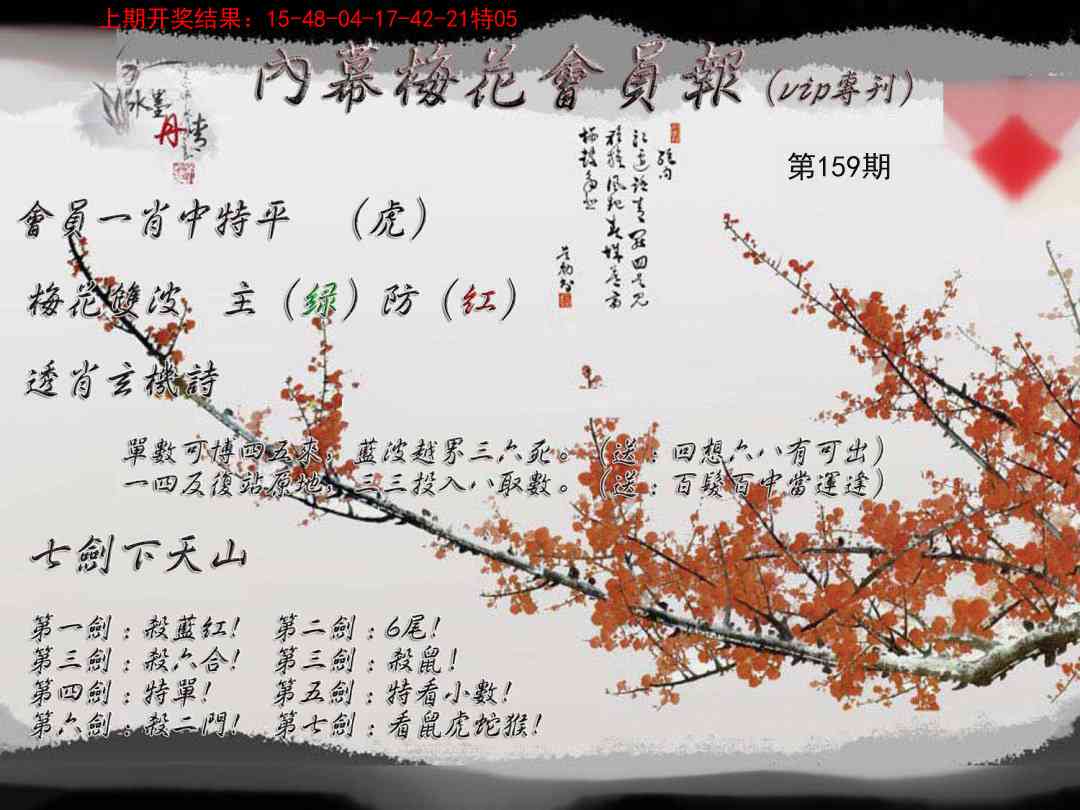 上期开奖结果：15-48-04-17-42-21特05
內幕梅花會員報（vip專刊）
水墨
丹青
第159期
會員一肖中特平 （虎）
梅花雙波 主（绿）防（红）
透肖玄機詩
單數可博四五來，藍波越界三六死。（送：回想六八有可出）
一四反復站原地，三三投入八取數。（送：百髮百中當運逢）
七劍下天山
第一劍：殺藍紅！ 第二劍：6尾！
第三劍：殺六合！ 第三劍：殺鼠！
第四劍：特單！ 第五劍：特看小數！
第六劍：殺二門！ 第七劍：看鼠虎蛇猴！